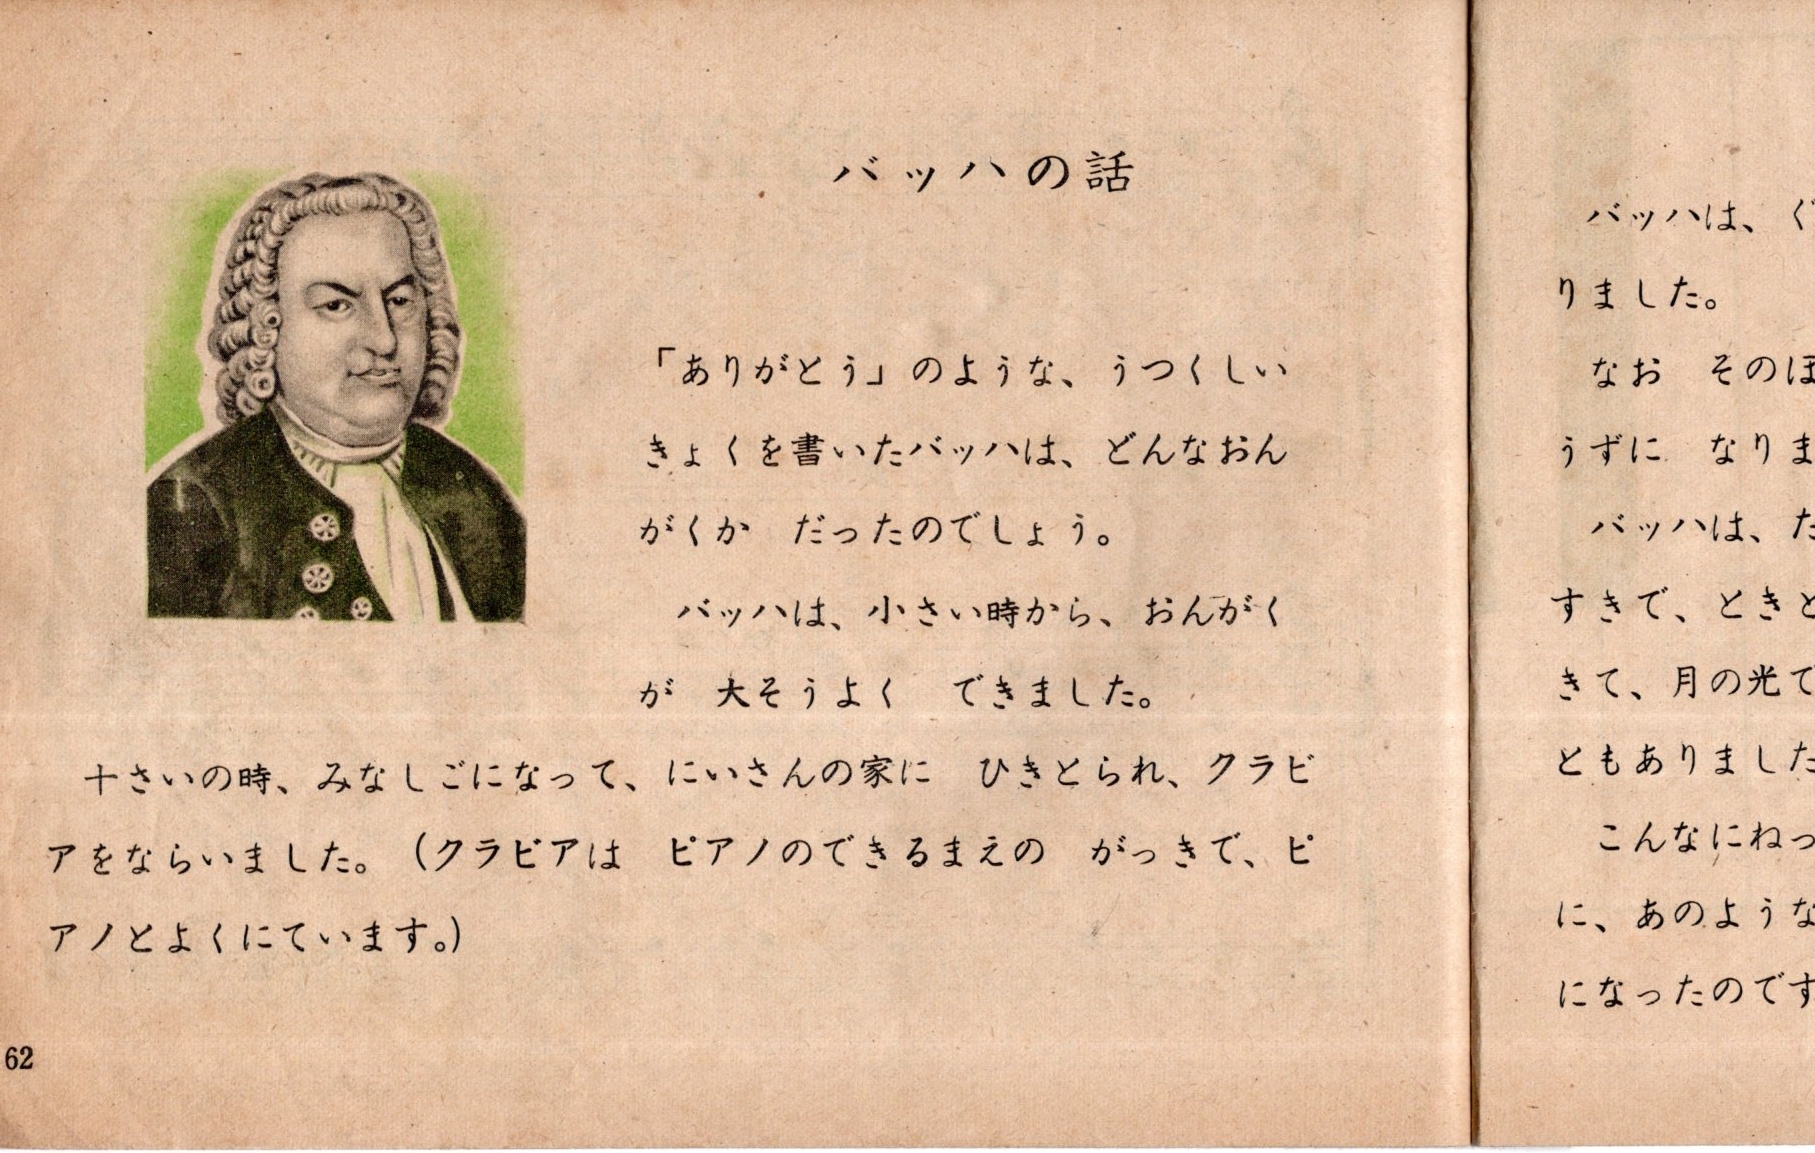 バッハの話
「ありがとう」のような、うつくしい
きょくを書いたバッハは、どんなおん
がくか　だったのでしょう。
バッハは、小さい時から、おんがく
が　大そうよく　できました。
十さいの時、みなしごになって、にいさんの家に　ひきとられ、クラビ
アをならいました。（クラビアは　ピアノのできるまえの　がっきで、ピ
アノとよくにています。）
62
バッハは、ぐ
りました。
なお　そのほ
うずに　なりま
バッハは、た
すきで、ときと
きて、月の光で
ともありました
こんなにねっ
に、あのような
になったのです